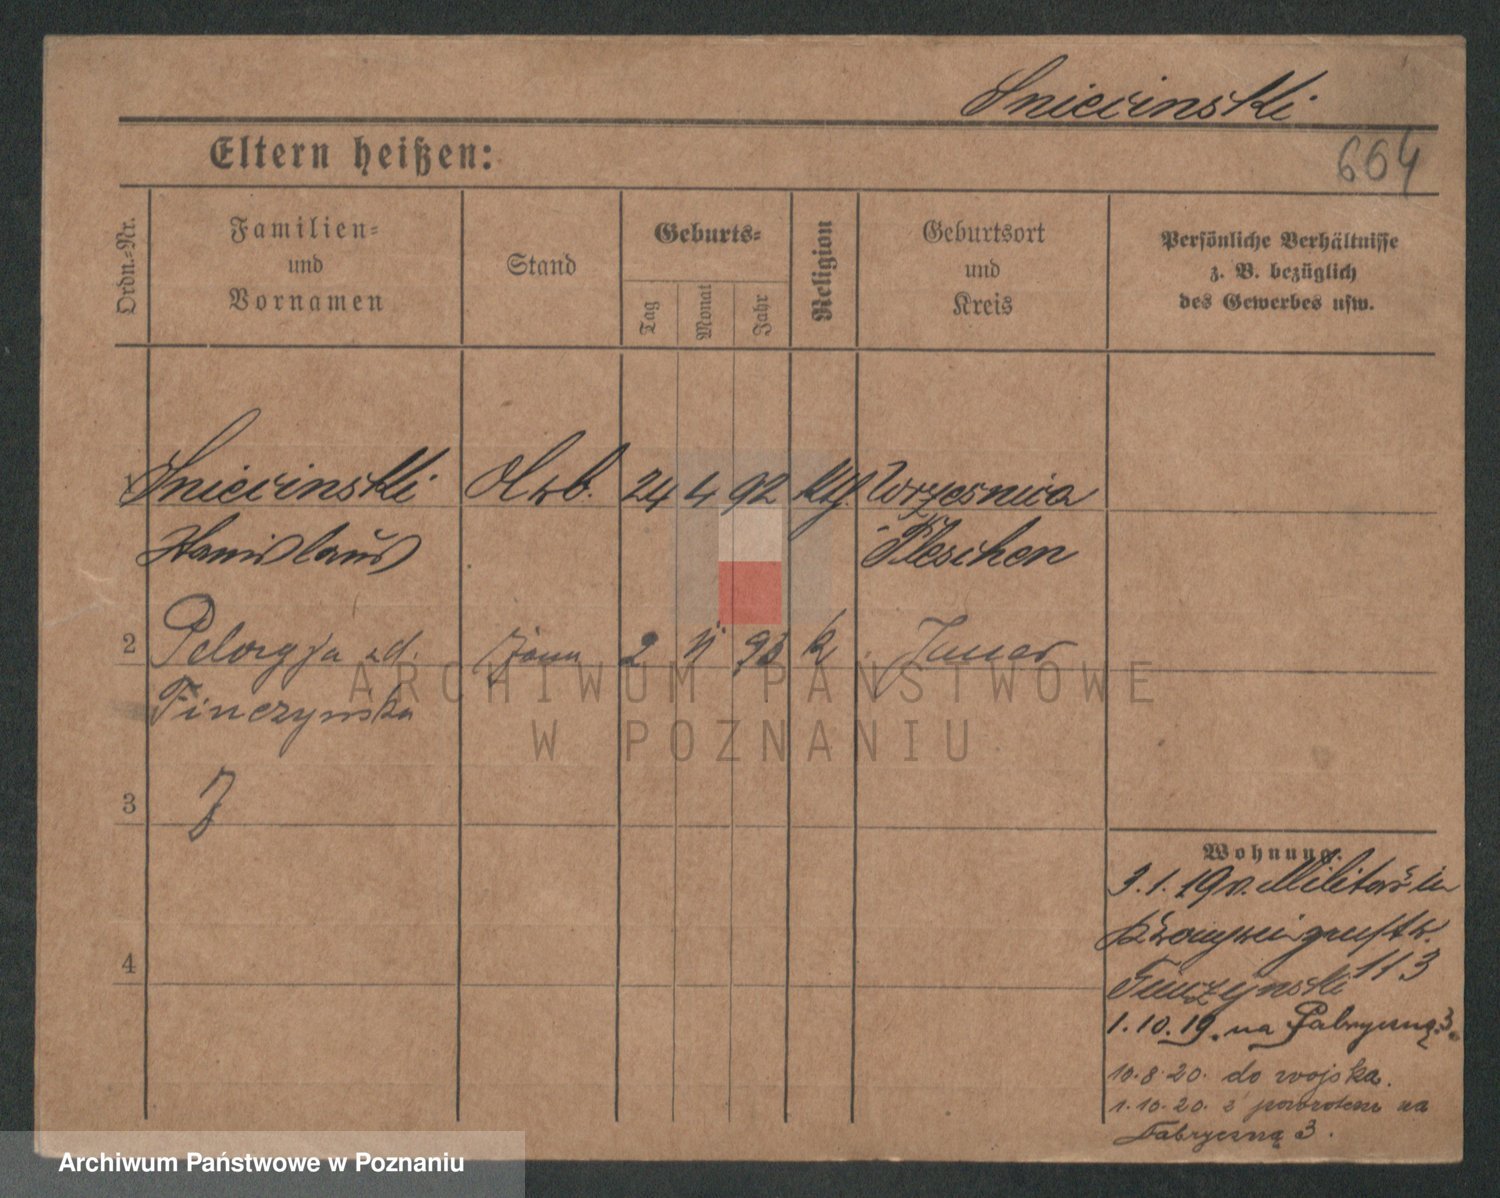 Sniecinski
664
Eltern heißen:
Ordn.-Nr.
Familien-
und
Vornamen
Stand
Geburts-
Tag
Monat
Jahr
Religion
Geburtsort
und
Kreis
Persönliche Verhältnisse
z. B. bezüglich
des Gewerbes usw.
Sniecinski Arb. 24 4 92 Wrzesnica
Stanislaus Pleschen
2 Pelagja zd. żona 2 93 k Jauer
Tinczynska
3
4
Wohnung.
3.1.19 v. Militär in
113
1.10.19. na Fabryczną 3.
10.8.20. do wojska.
1.10.20. z powrotem na
Fabryczną 3.
ARCHIWUM PAŃSTWOWE
W POZNANIU
Archiwum Państwowe w Poznaniu